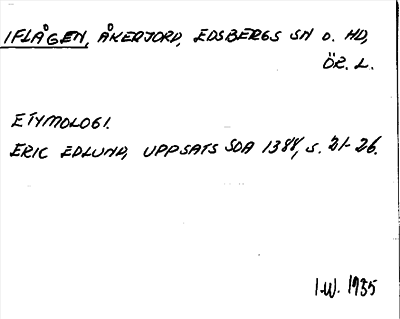 IFLÅGEN, ÅKERJORD, EDSBERGS SN O. HD,
ÖR. L.
ETYMOLOGI.
ERIC EDLUND, UPPSATS SOA 1388, S. 21-26.
I.W. 1935